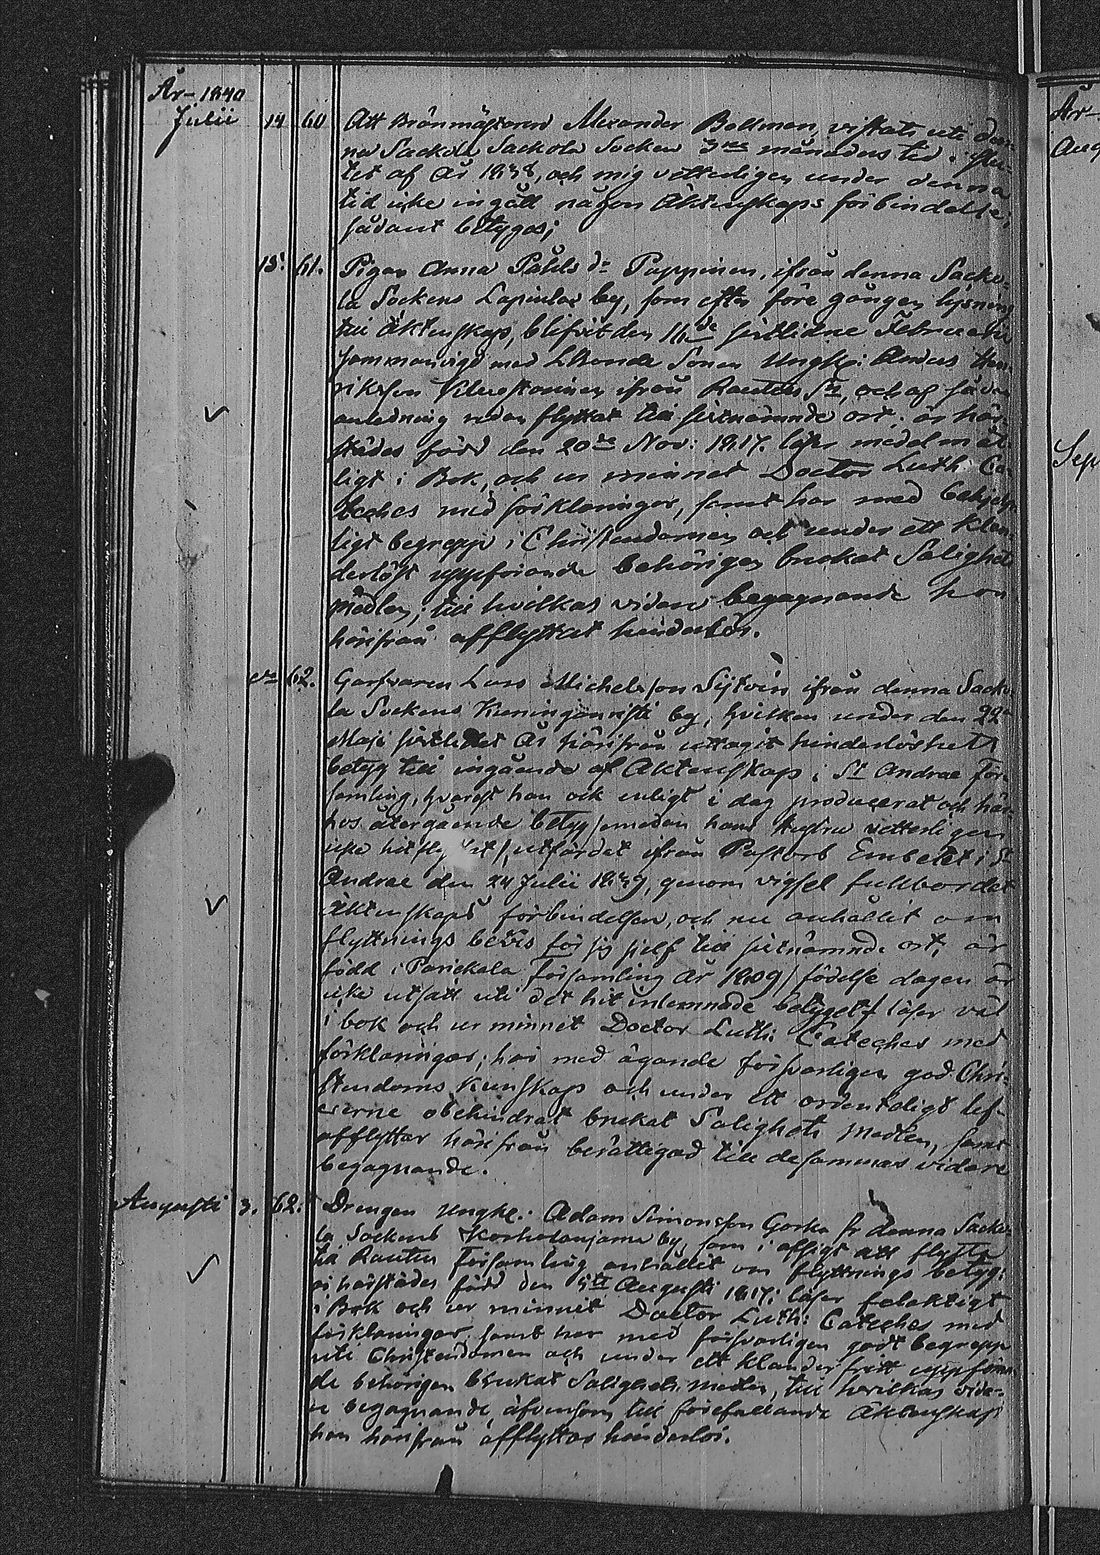 År 1840
Julii 14 60 Att Bränmästaren Alexander Bellman, vistats uti den-
na Sackola Sackola Socken 3ne månaders tid. i slu-
tet af År 1838, och mig vetterligen under denna
tid icke ingått någon Äktenskaps förbindelse;
sådant betygas;
15. 61. Pigan Anna Påhls dr Puppinen, ifrån denna Sacko-
la Sockens Lapinlax by, som efter före gången lysning
till Äktenskap, blifvit den 11de Februarii
sammanvigd med Sonen Ynghe: Anders Hen-
riksson ifrån Rautus Sn, och af sådan
anledning redan flyttat till sistnämnde ort; är här-
städes född den 20de Nov: 1817. läser medelmåt-
ligt i Bok, och ur minnet Doctor Luth: Ca-
teches med förklaringar, samt har med behje-
ligt begrepp i Christendomen och under ett klan-
derlöst uppförande behörigen brukat Salighets
Medlen; till hvilkas vidare begagnande hon
härifrån afflyttat hinderlös.
62. Garfvaren Lars Michelsson Sÿtvin ifrån denna Sacko-
la Sockens Kuninganristi by, hvilken under den 22
Maji sistledet År härifrån uttagit hinderlöshets
betyg till ingående af Äktenskap i St Andrae För-
samling, hvarest han ock enligt i dag producerat och här-
hos återgående betyg /emedan hans hustru vetterligen
icke hitflyttat/, utfärdet ifrån Pastors Embetet i St
Andrae den 24 Julii 1839, genom vigsel fullbordat
Äktenskaps förbindelsen, och nu anhållit om
flyttnings bevis för sig sjelf till sistnämnde ort, är
född i Parickala Församling År 1809 / födelse dagen är
icke utsatt uti det hit inlemnade betyget / läser väl
i bok och ur minnet Doctor Luth: Cateches med
förklaringar; har med ägande försvarligen god Chri-
stendoms kunskap och under ett ordentligt lef-
verne obehindrat brukat Salighets Medlen, samt
afflyttar härifrån berättigad till desammas vidare
begagnande.
Augusti 3. 62. Drengen Ynghe: Adam Simonsson Gorka fr denna Sacko-
la Sockens Korholanjama by, som i afsigt att flytta
till Rautus Församling anhållit om flyttnings betyg;
är härstädes född den 5te Augusti 1817: läser felaktigt
i Bok och ur minnet Doctor Luth: Cateches med
förklaringar, samt har med försvarligen godt begrepp
uti Christendomen och under ett klanderfritt uppföran-
de behörigen brukat Salighets medlen, till hvilkas vida-
re begagnande äfvensom till förefallande Äktenskap
han härifrån afflyttas hinderlös.
År-
Aug
Sep